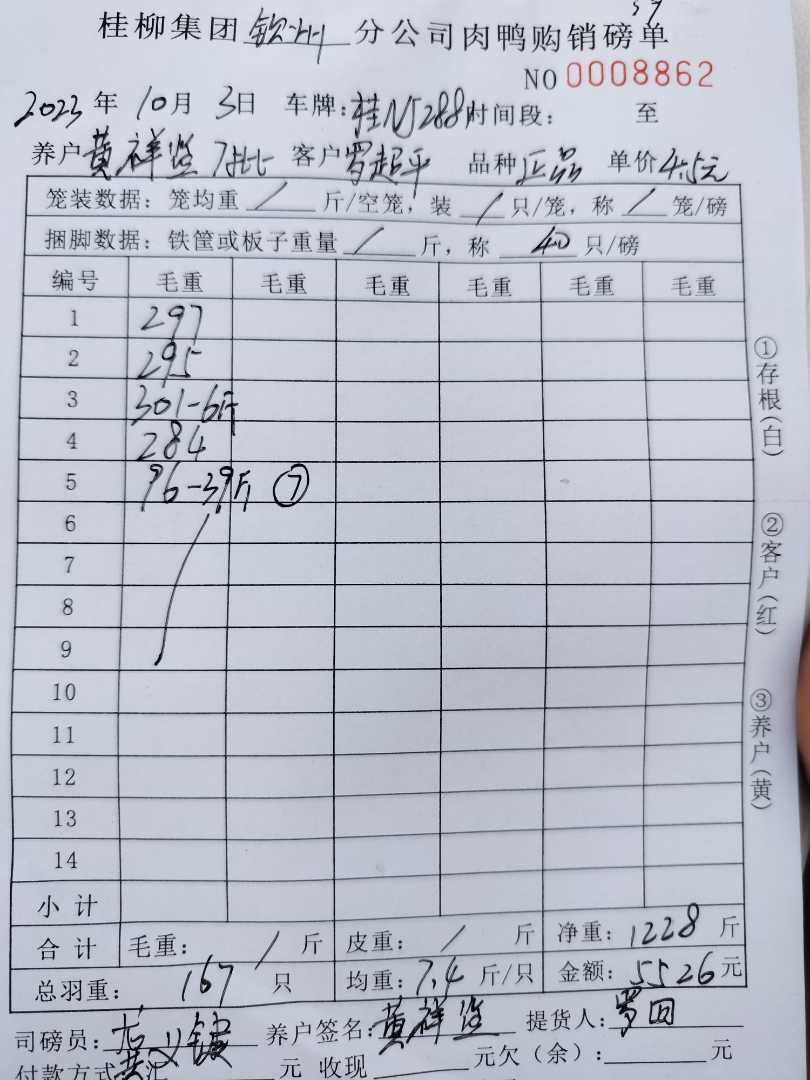 桂柳集团钦州分公司肉鸭购销磅单
NO 0008862
2023年10月3日 车牌:桂NJ288 时间段: 至
养户黄祥监7批 客户罗超平 品种正品 单价4.5元
笼装数据:笼均重 / 斤/空笼,装 / 只/笼,称 / 笼/磅
捆脚数据:铁筐或板子重量 / 斤,称 40 只/磅
编号 毛重 毛重 毛重 毛重 毛重 毛重
1 297
2 295
3 301-6斤
4 284
5 96-39斤 ⑦
6
7
8
9
10
11
12
13
14
小计
合计 毛重: / 斤 皮重: / 斤 净重:1228斤
总羽重: 167 只 均重:7.4斤/只 金额:5526元
司磅员: 养户签名:黄祥监 提货人:罗
付款方式 汇 元 收现 元欠(余): 元
①存根(白)
②客户(红)
③养户(黄)